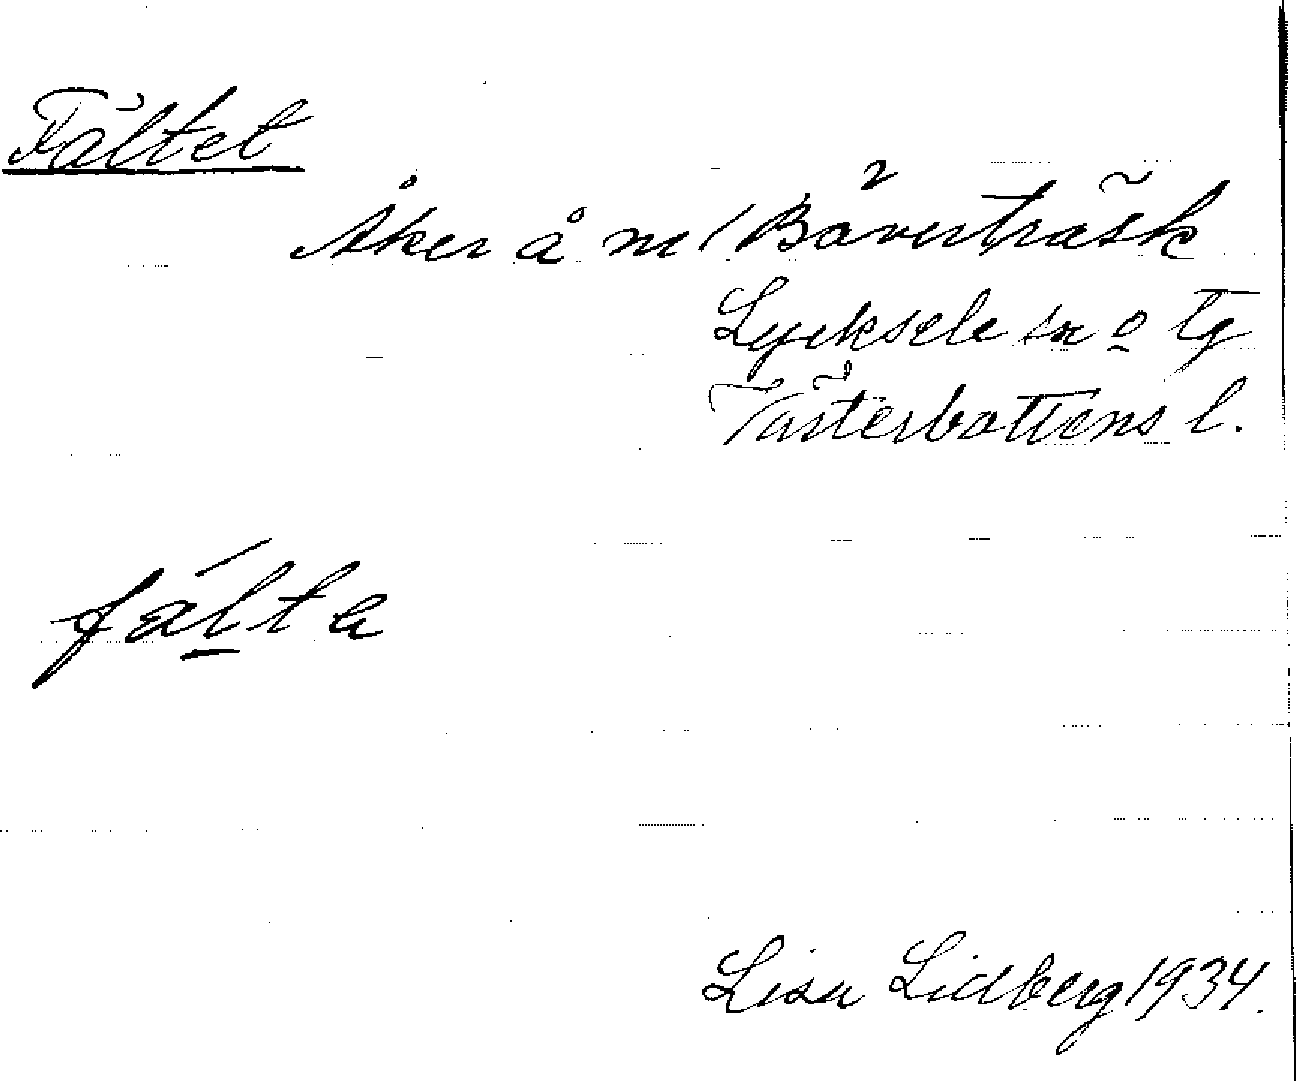 Fältet
Åker å nr 1 Bäverträsk
Lycksele sn o tg
Västerbottens l.
fälta
Lisa Lidberg 1934.